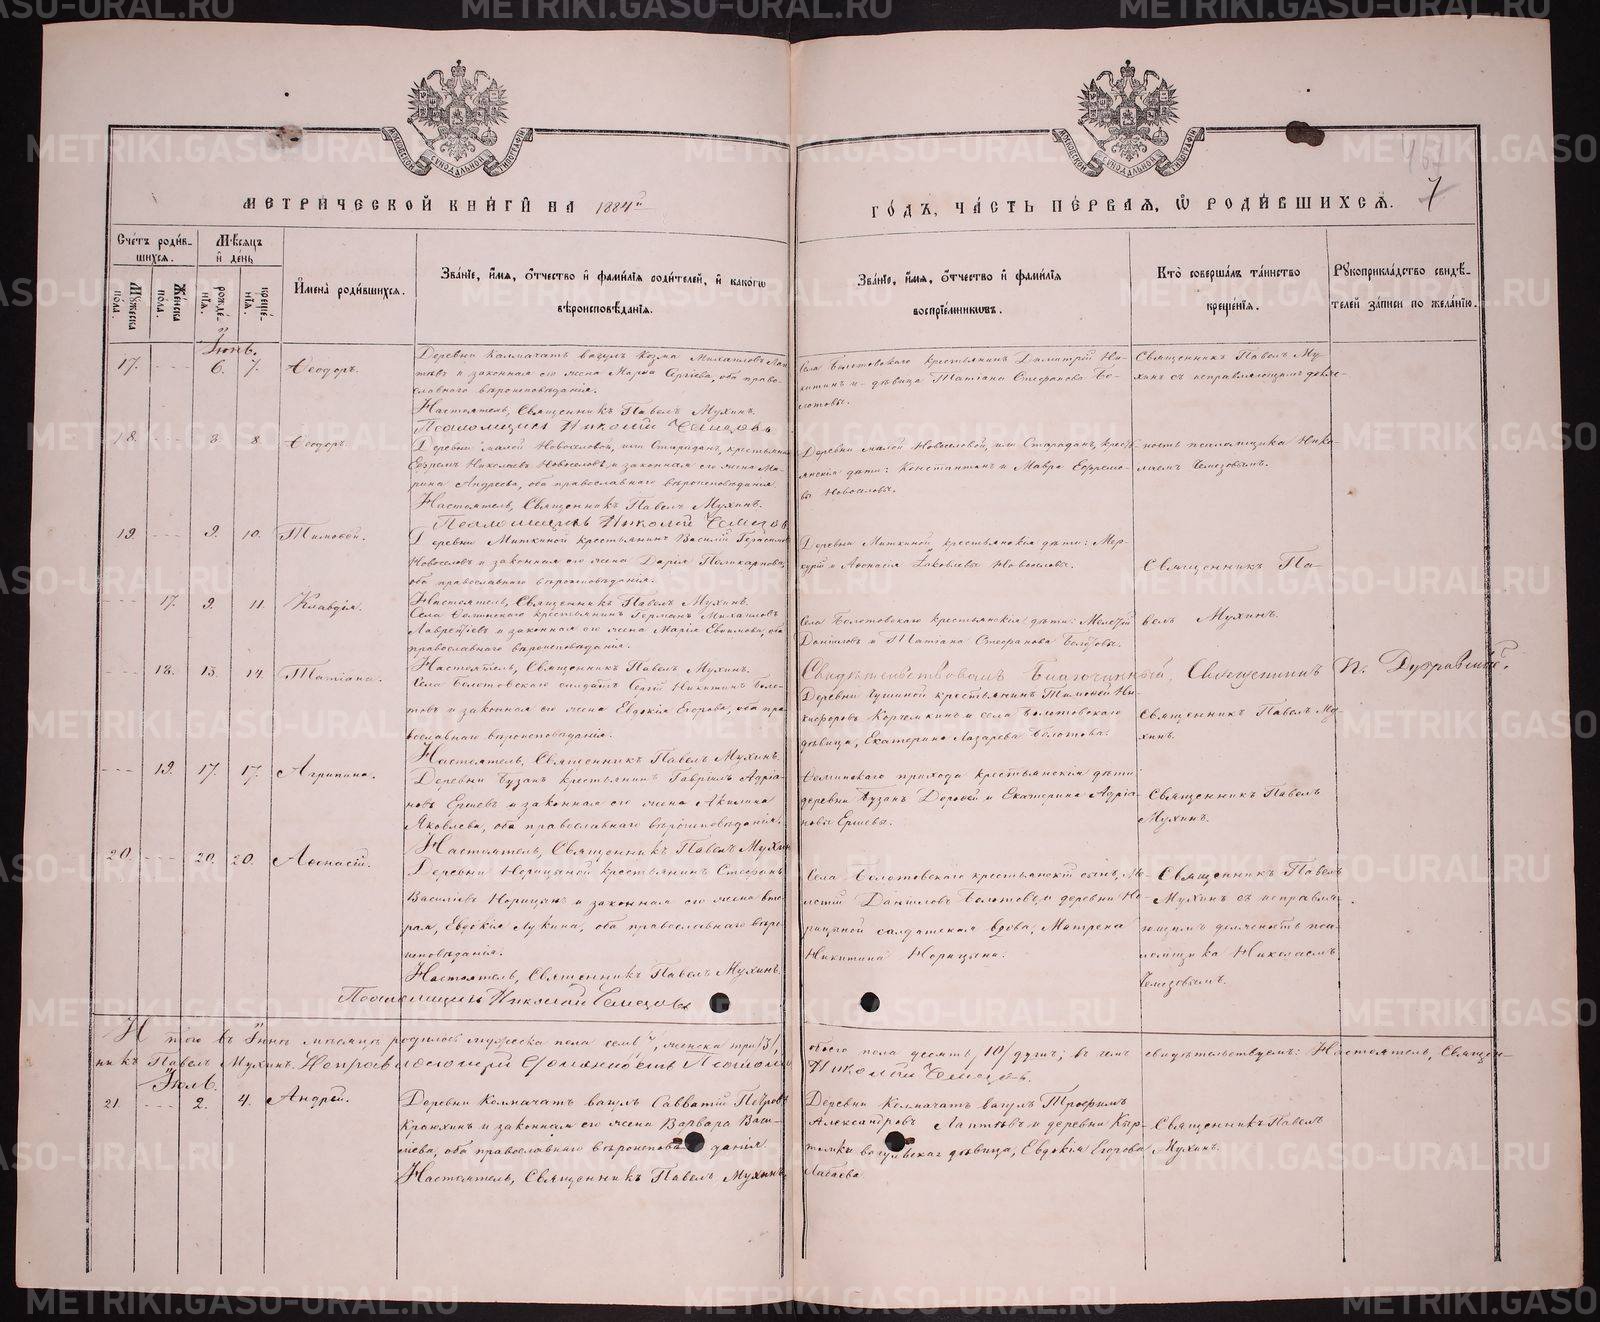 МЕТРИЧЕСКОЙ КНИГИ НА 1884й
ГОДЪ, ЧАСТЬ ПЕРВАЯ, Ѡ РОДИВШИХСЯ.
7
Счетъ родив-
шихся.
Мѣсяцъ
и день
Мужеска
пола.
Женска
пола.
рожде-
нія.
креще-
нія.
Имена родившихся.
Званіе, имя, отчество и фамилія родителей, и какогѡ
вѣроисповѣданія.
Званіе, имя, отчество и фамилія
воспріемниковъ.
Кто совершалъ таинство
крещенія.
Рукоприкладство свидѣ-
телей записи по желанію.
Іюнь.
17. 6. 7. Ѳеодоръ.
Деревни Калмачатъ вагулъ Козма Михаиловъ Лап
тевъ и законная его жена Марѳа Сергіева, оба право-
славнаго вѣроисповѣданія.
Настоятель, Священникъ Павелъ Мухинъ.
Псаломщикъ Николай Чемезовъ
Села Болотовскаго крестьянинъ Димитрій Ни-
китинъ и дѣвица Татіана Стефанова Бо-
лотовы.
Священникъ Павелъ Му-
хинъ съ исправляющимъ долж-
18. 8. 8. Ѳеодоръ.
Деревни малой Новоселовой, или Старидан, крестьянинъ
Ефремъ Николаевъ Новоселовъ и законная его жена Ма-
рина Андреева, оба православнаго вѣроисповѣданія
Настоятель, Священникъ Павелъ Мухинъ.
Псаломщикъ Николай Чемезовъ
Деревни малой Новоселовой, или Старидан, крест
янскія дѣти: Константинъ и Мавра Ефремо-
вы Новоселовы.
ность псаломщика Нико-
лаемъ Чемезовымъ.
19. 9. 10. Тимоѳей.
Деревни Миткиной крестьянинъ Василій Герасимовъ
Новоселовъ и законная его жена Дарія Поликарпова,
оба православнаго вѣроисповѣданія.
Настоятель, Священникъ Павелъ Мухинъ.
Деревни Миткиной крестьянскія дѣти: Мер-
курій и Аѳонасія Іаковлевы Новоселовы.
Священникъ Па-
17. 9. 11. Клавдія.
Села Ѳоминскаго крестьянинъ Германъ Михаиловъ
Лаврентіевъ и законная его жена Марія Евѳимова, оба
православнаго вѣроисповѣданія.
Настоятель, Священникъ Павелъ Мухинъ.
Села Болотовскаго крестьянскія дѣти: Мелетій
Даніиловъ и Татіана Стефанова Болотовы.
велъ Мухинъ.
18. 13. 14. Татіана.
Свидѣтельствовалъ Благочинный, Священникъ П.
Села Болотовскаго солдатъ Сергій Никитинъ Боло-
товъ и законная его жена Евдокія Егорова, оба пра-
вославнаго вѣроисповѣданія.
Настоятель, Священникъ Павелъ Мухинъ.
Деревни Гушиной крестьянинъ Тимоѳей Ни-
кифоровъ Коргемкинъ и села Болотовскаго
дѣвица, Екатерина Лазарева Болотова.
Священникъ Павелъ Му-
хинъ.
19. 17. 17. Агрипина.
Деревни Бузанъ крестьянинъ Гавріилъ Адріа-
новъ Ершевъ и законная его жена Акилина
Яковлева, оба православнаго вѣроисповѣданія.
Настоятель, Священникъ Павелъ Мухинъ
Ѳоминскаго прихода крестьянскія дѣти
деревни Бузанъ Дороѳей и Екатерина Адріа-
новы Ершевы.
Священникъ Павелъ
Мухинъ.
20. 20. 20. Аѳонасій.
Деревни Норицыной крестьянинъ Стефанъ
Василіевъ Норицынъ и законная его жена вто-
рая, Евдокія Лукина, оба православнаго вѣро-
исповѣданія.
Настоятель, Священникъ Павелъ Мухинъ.
Псаломщикъ Николай Чемезовъ
Села Болотовскаго крестьянскій сынъ, Ме-
летій Даніиловъ Болотовъ, и деревни Но-
рицыной салдатская вдова, Матрена
Никитина Норицына.
Священникъ Павелъ
Мухинъ съ исправля-
ющимъ должность пса-
ломщика Николаемъ
Чемезовымъ.
Итого въ Іюнѣ мѣсяцѣ родилось мужеска пола семь /7/, женска три /3/, обоего пола десять /10/ душъ; въ чемъ свидѣтельствуемъ: Настоятель, Священ-
никъ Павелъ Мухинъ. Исправляющій должность Псаломщ Николай Чемезовъ.
Іюль.
21. 2. 4. Андрей.
Деревни Колмачатъ вагулъ Савватій Петровъ
Краюхинъ и законная его жена Варвара Васи-
ліева, оба православнаго вѣроисповѣданія.
Настоятель, Священникъ Павелъ Мухинъ
Деревни Колмачатъ вагулъ Трофимъ
Александровъ Лаптевъ и деревни Кыр-
томки вагульская дѣвица, Евдокія Егорова
Лабаева.
Священникъ Павелъ
Мухинъ.